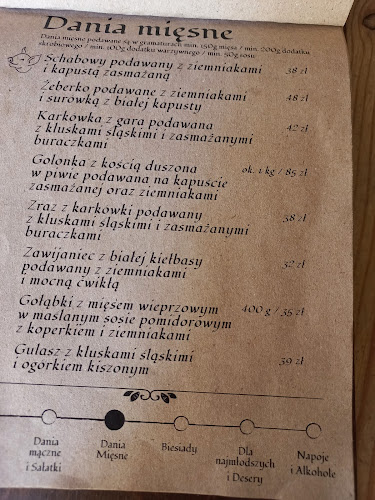 Dania mięsne
Dania mięsne podawane są w gramaturach min. 150g mięsa / min. 200g dodatku
skrobiowego / min. 100g dodatku warzywnego / min. 50g sosu
Schabowy podawany z ziemniakami 38 zł
i kapustą zasmażaną
Żeberko podawane z ziemniakami 48 zł
i surówką z białej kapusty
Karkówka z gara podawana 42 zł
z kluskami śląskimi i zasmażanymi
buraczkami
Golonka z kością duszona ok. 1 kg / 85 zł
w piwie podawana na kapuście
zasmażanej oraz ziemniakami
Zraz z karkówki podawany 38 zł
z kluskami śląskimi i zasmażanymi
buraczkami
Zawijaniec z białej kiełbasy 32 zł
podawany z ziemniakami
i mocną ćwikłą
Gołąbki z mięsem wieprzowym 400 g / 35 zł
w maślanym sosie pomidorowym
z koperkiem i ziemniakami
Gulasz z kluskami śląskimi 39 zł
i ogórkiem kiszonym
Dania
mączne
i Sałatki
Dania
Mięsne
Biesiady
Dla
najmłodszych
i Desery
Napoje
i Alkohole